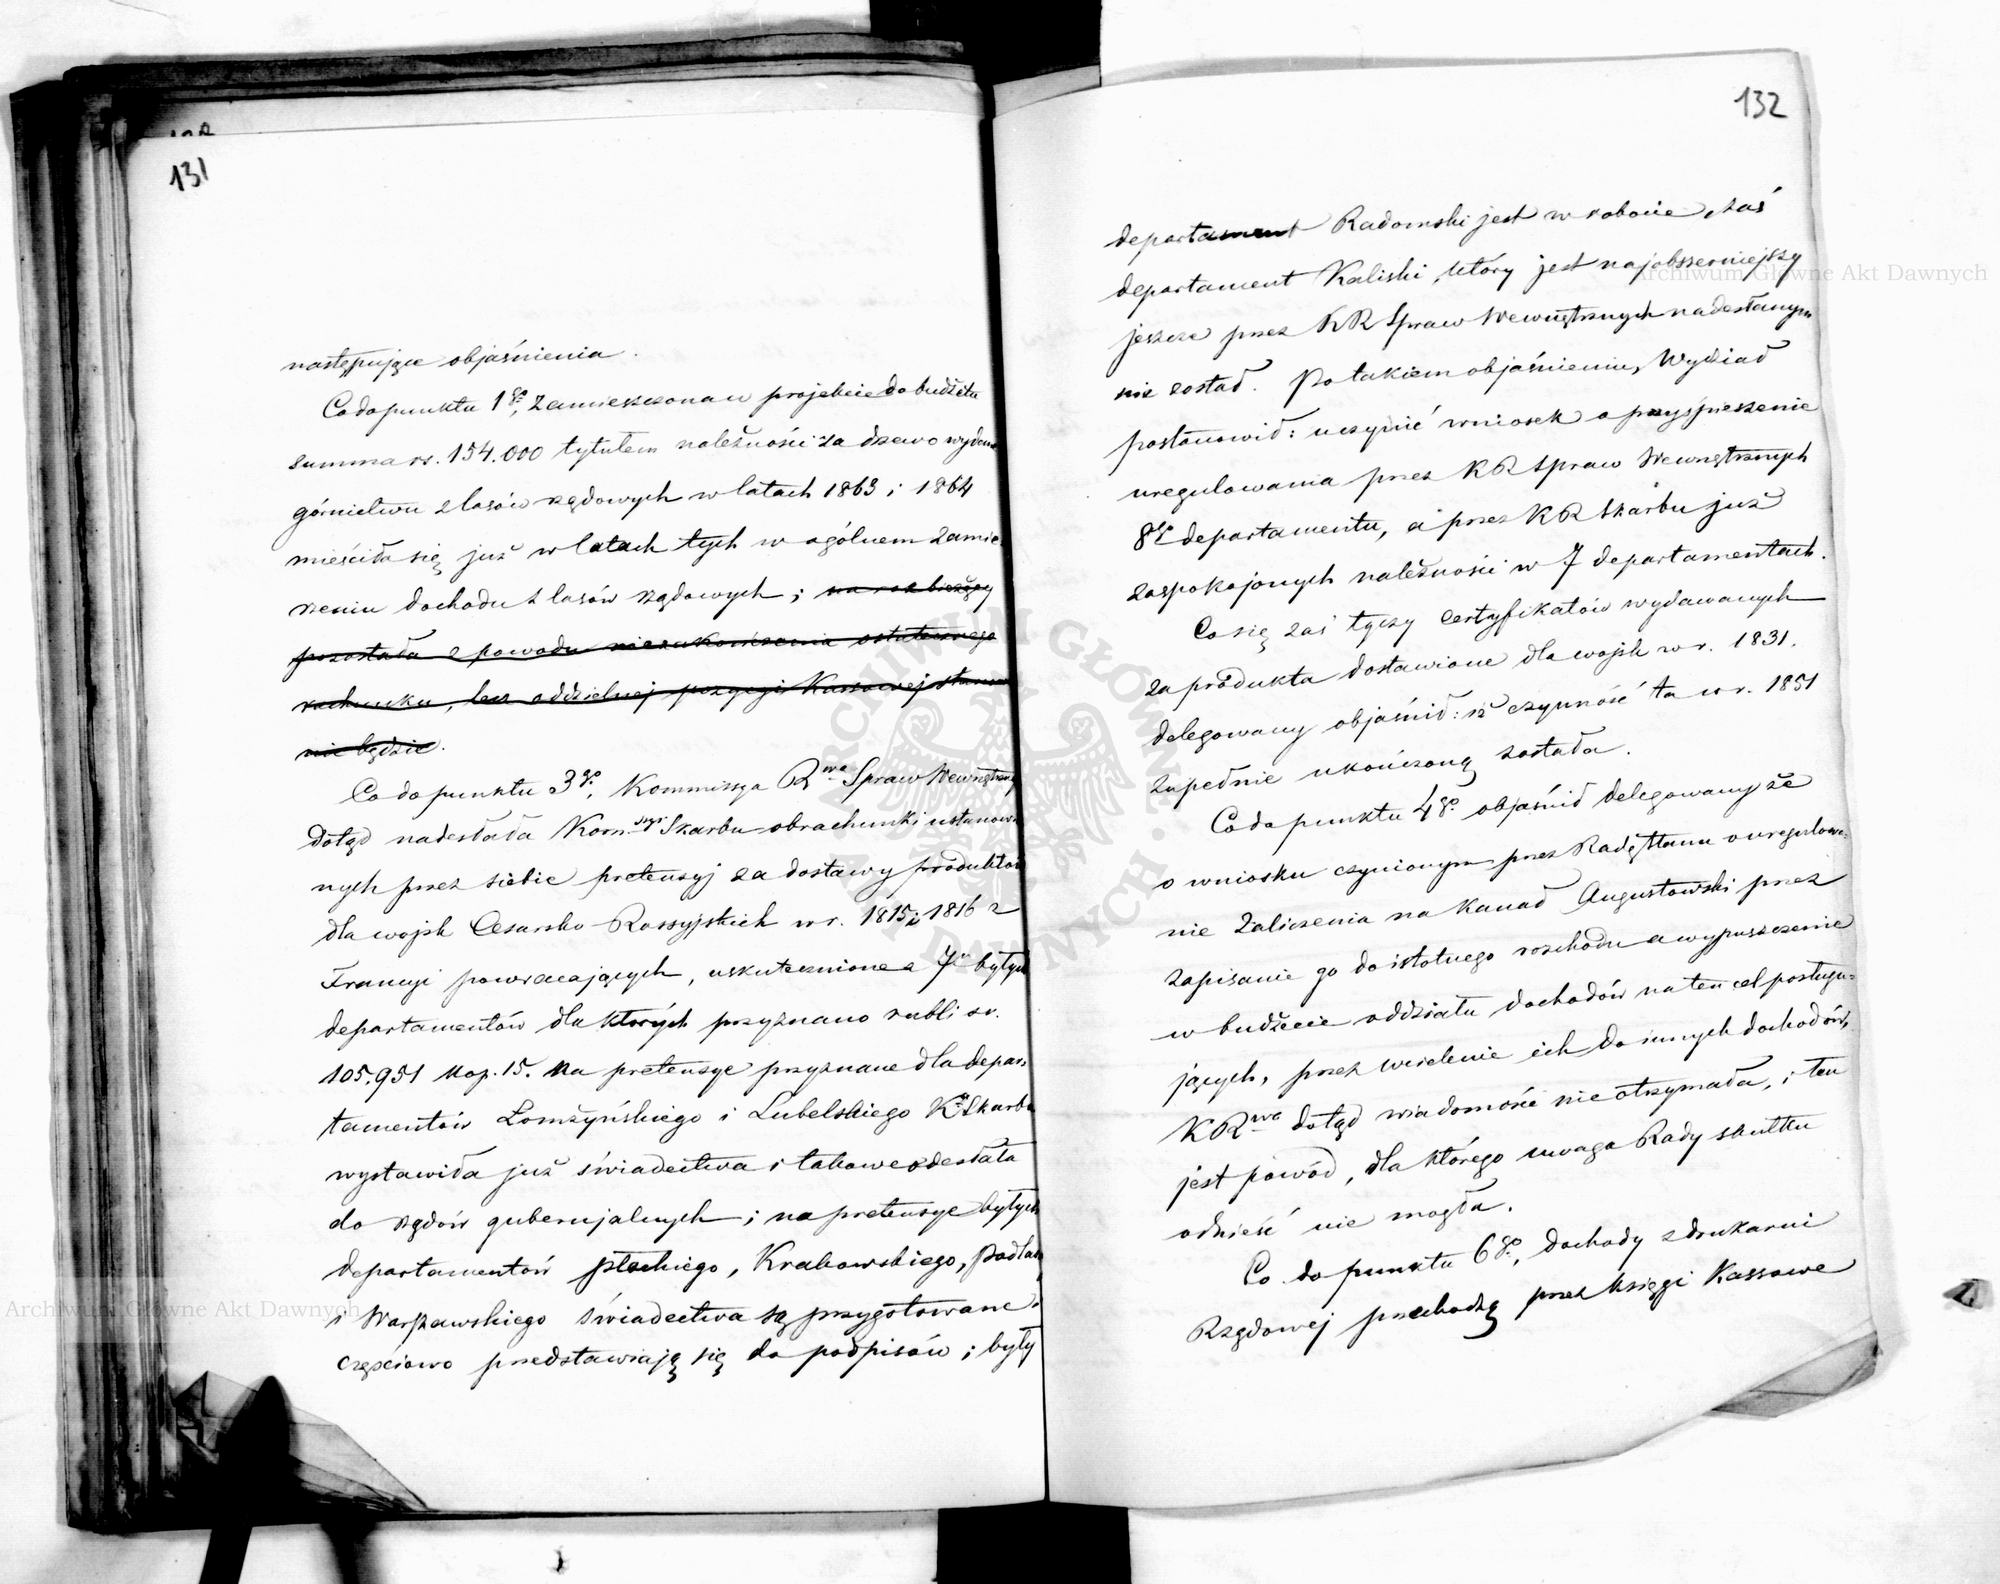 131
następujące objaśnienia.
Co do punktu 1go, Zamieszczona w projekcie do budżetu
summa rs. 154.000 tytułem należności za drzewo wydane
górnictwu z lasów rządowych w latach 1863 i 1864
mieściła się już w latach tych w ogólnem zamie-
rzeniu dochodu z lasów rządowych; na rok bieżący
pozostała z powodu nieukończenia ostatecznego
rachunku, lecz oddzielnej pozycyi Kassowej
nie będzie.
Co do punktu 3go, Kommissya Rwa Spraw Wewnętrznych
dotąd nadesłała Kom. Skarbu obrachunki ustanowio
nych przez siebie pretensyj za dostawy produktów
dla wojsk Cesarsko-Rossyjskich w r. 1815 i 1816 z
Francyi powracających, uskutecznione z 7u byłych
departamentów dla których przyznano rubli sr.
105.951 kop. 15. Na pretensye przyznane dla depar-
tamentów Łomżyńskiego i Lubelskiego K.R. Skarbu
wystawiła już świadectwa i takowe odesłała
do rządów gubernjalnych; na pretensye byłych
departamentów płockiego, Krakowskiego, Podlas
i Warszawskiego świadectwa są przygotowane i
częściowo przedstawiają się do podpisów; były
132
departament Radomski jest w robocie, zaś
departament Kaliski, który jest najobszerniejszy
jeszcze przez KR Spraw Wewnętrznych nadesłanym
nie został. Po takiem objaśnieniu, Wydział
postanowił: uczynić wniosek o przyśpieszenie
uregulowania przez KR Spraw Wewnętrznych
8go departamentu, a przez KR Skarbu już
zaspokojonych należności w 7 departamentach.
Co się zaś tyczy certyfikatów wydawanych
za produkta dostawione dla wojsk w r. 1831.
delegowany objaśnił: iż czynność ta w r. 1851
zupełnie ukończoną została.
Co do punktu 4go objaśnił delegowany że
o wniosku czynionym przez Radę Stanu o uregulowa-
nie Zaliczenia na Kanał Augustowski przez
zapisanie go do istotnego rozchodu a wypuszczenie
w budżecie oddziału dochodów na ten cel posługu-
jących, przez wcielenie ich do innych dochodów,
KRwa dotąd wiadomości nie otrzymała, i ten
jest powód, dla którego uwaga Rady skutku
odnieść nie mogła.
Co do punktu 6go, dochody z drukarni
Rządowej przechodzą przez księgi Kassowe
Archiwum Główne Akt Dawnych
Archiwum Główne Akt Dawnych
ARCHIWUM GŁÓWNE AKT DAWNYCH